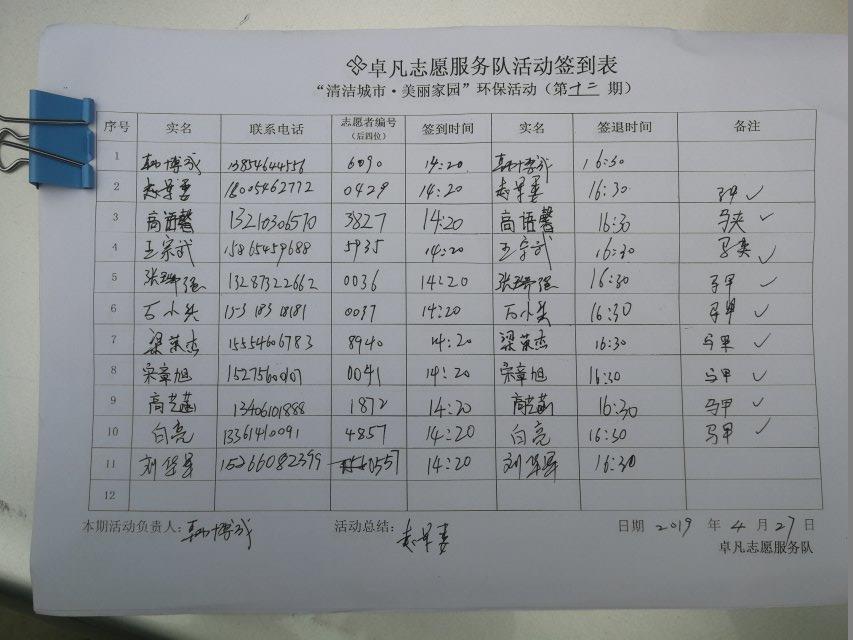 卓凡志愿服务队活动签到表
“清洁城市·美丽家园”环保活动（第十二期）
序号 实名 联系电话 志愿者编号（后四位） 签到时间 实名 签退时间 备注
1 韩博成 13854644556 6090 14:20 韩博成 16:30
2 18005462772 0429 14:20 16:30 马甲 ✓
3 高语馨 13210306570 3827 14:20 高语馨 16:30 马夹 ✓
4 王宗武 15865459688 5935 14:20 王宗武 16:30 马夹 ✓
5 13287322662 0036 14:20 16:30 马甲 ✓
6 0037 14:20 16:30 马甲 ✓
7 梁荣杰 15554606783 8940 14:20 梁荣杰 16:30 马甲 ✓
8 宋章旭 0041 14:20 宋章旭 16:30 马甲 ✓
9 13406101888 1872 14:20 16:30 马甲 ✓
10 白亮 13361410091 4857 14:20 白亮 16:30 马甲 ✓
11 15266082399 0557 14:20 16:30
12
本期活动负责人：韩博成 活动总结： 日期 2019 年 4 月 27 日
卓凡志愿服务队